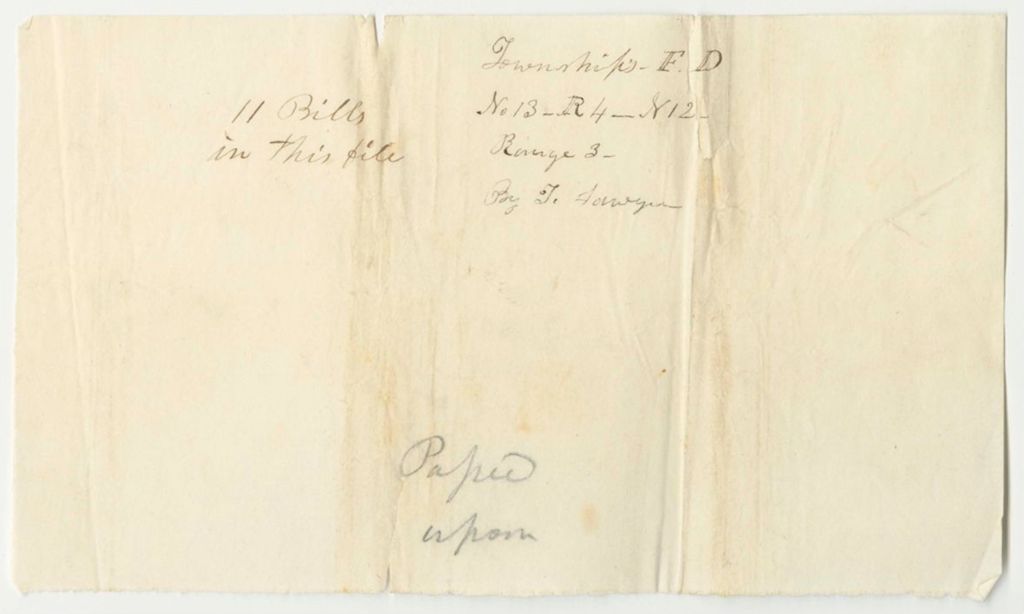 11 Bills
in this file
Townships - E. D
No 13 - R 4 - N 12 -
Range 3 -
By T. Sawyer
Passed
upon